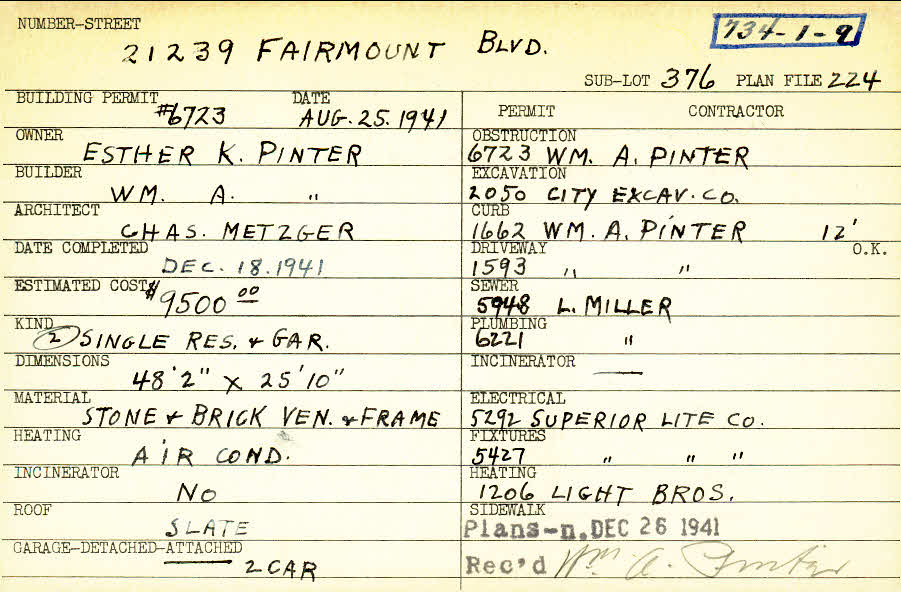 NUMBER-STREET
21239 FAIRMOUNT BLVD.
734-1-9
SUB-LOT 376 PLAN FILE 224
BUILDING PERMIT #6723 DATE AUG. 25. 1941
OWNER ESTHER K. PINTER
BUILDER WM. A. "
ARCHITECT CHAS. METZGER
DATE COMPLETED DEC. 18. 1941
ESTIMATED COST $9500 00
KIND (2) SINGLE RES. & GAR.
DIMENSIONS 48'2" X 25'10"
MATERIAL STONE & BRICK VEN. & FRAME
HEATING AIR COND.
INCINERATOR NO
ROOF SLATE
GARAGE-DETACHED-ATTACHED 2 CAR
PERMIT CONTRACTOR
OBSTRUCTION 6723 WM. A. PINTER
EXCAVATION 2050 CITY EXCAV. CO.
CURB 1662 WM. A. PINTER 12'
DRIVEWAY 1593 " " O.K.
SEWER 5948 L. MILLER
PLUMBING 6221 "
INCINERATOR —
ELECTRICAL 5292 SUPERIOR LITE CO.
FIXTURES 5427 " " "
HEATING 1206 LIGHT BROS.
SIDEWALK
Plans-n. DEC 26 1941
Rec'd Wm. A. Pinter